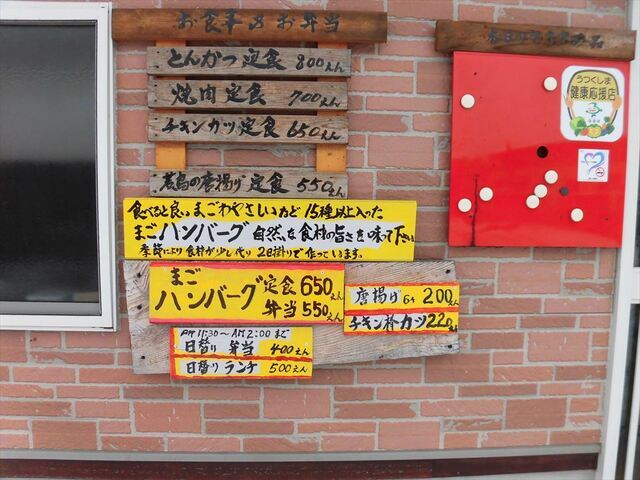 お食事&お弁当
とんかつ定食 800えん
焼肉定食 700えん
チキンカツ定食 650えん
若鳥の唐揚げ定食 550えん
食べると良い、まごわやさしいなど 15種以上入った
まごハンバーグ 自然な食材の旨さを味って下さい
季節により食材が少し代り 2日掛りで作っています。
まごハンバーグ 定食 650えん
弁当 550えん
唐揚げ 6ケ 200えん
チキン棒カツ 220えん
PM 11:30～AM 2:00まで
日替り 弁当 400えん
日替り ランチ 500えん
うつくしま
健康応援店